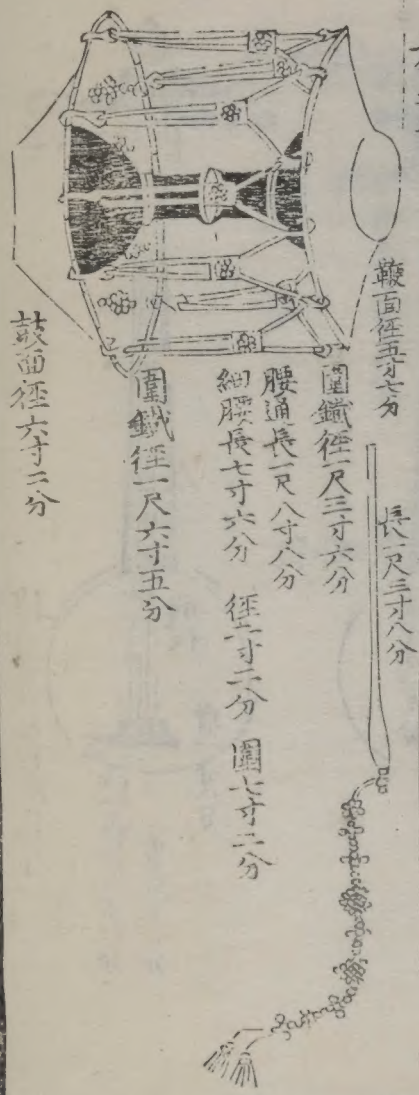 長一尺三寸八分
鞭面徑五寸七分
圍鐵徑一尺三寸六分
腰通長一尺八寸八分
細腰長七寸六分 徑二寸二分 圍七寸二分
圍鐵徑一尺六寸五分
鼓面徑六寸二分